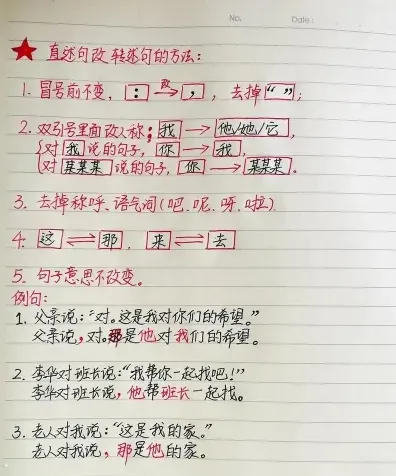 No.
Date:
★ 直述句改转述句的方法:
1. 冒号前不变, : 改→ , , 去掉 “ ”;
2. 双引号里面改人称: 我 → 他/她/它,
{对 我 说的句子, 你 → 我,
{对 某某某 说的句子, 你 → 某某某.
3. 去掉称呼、语气词(吧、呢、呀、啦)
4. 这 ⇌ 那, 来 ⇌ 去
5. 句子意思不改变。
例句:
1. 父亲说:“对。这是我对你们的希望。”
父亲说,对。那是他对我们的希望。
2. 李华对班长说:“我帮你一起找吧!”
李华对班长说,他帮班长一起找。
3. 老人对我说:“这是我的家。”
老人对我说,那是他的家。